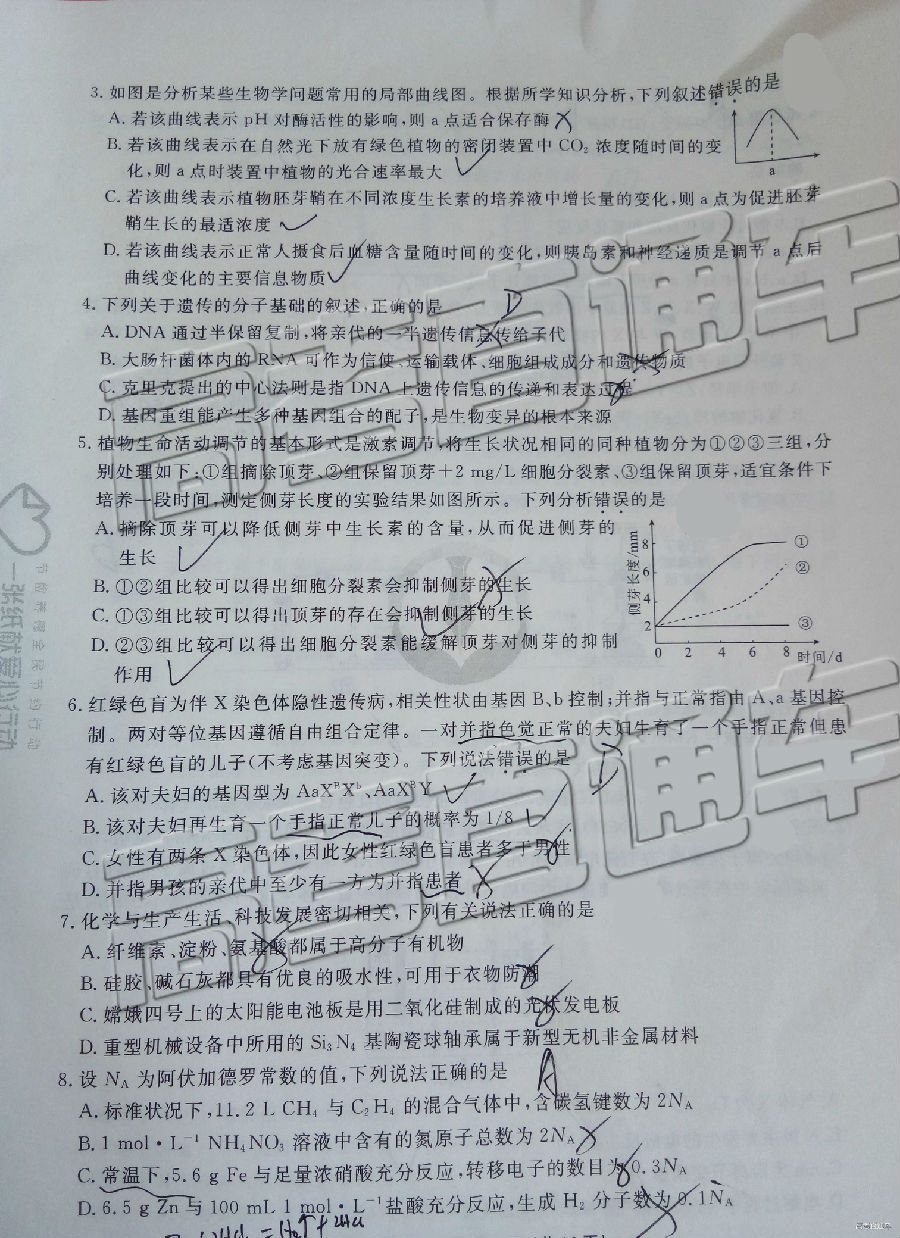 3. 如图是分析某些生物学问题常用的局部曲线图。根据所学知识分析,下列叙述错误的是
A. 若该曲线表示 pH 对酶活性的影响,则 a 点适合保存酶
B. 若该曲线表示在自然光下放有绿色植物的密闭装置中 CO₂ 浓度随时间的变
化,则 a 点时装置中植物的光合速率最大
a
C. 若该曲线表示植物胚芽鞘在不同浓度生长素的培养液中增长量的变化,则 a 点为促进胚芽
鞘生长的最适浓度
D. 若该曲线表示正常人摄食后血糖含量随时间的变化,则胰岛素和神经递质是调节 a 点后
曲线变化的主要信息物质
4. 下列关于遗传的分子基础的叙述,正确的是 D
A. DNA 通过半保留复制,将亲代的一半遗传信息传给子代
B. 大肠杆菌体内的 RNA 可作为信使、运输载体、细胞组成成分和遗传物质
C. 克里克提出的中心法则是指 DNA 上遗传信息的传递和表达过程
D. 基因重组能产生多种基因组合的配子,是生物变异的根本来源
5. 植物生命活动调节的基本形式是激素调节,将生长状况相同的同种植物分为①②③三组,分
别处理如下:①组摘除顶芽、②组保留顶芽+2 mg/L 细胞分裂素、③组保留顶芽,适宜条件下
培养一段时间,测定侧芽长度的实验结果如图所示。下列分析错误的是
A. 摘除顶芽可以降低侧芽中生长素的含量,从而促进侧芽的
生长
B. ①②组比较可以得出细胞分裂素会抑制侧芽的生长
C. ①③组比较可以得出顶芽的存在会抑制侧芽的生长
D. ②③组比较可以得出细胞分裂素能缓解顶芽对侧芽的抑制
作用
侧芽长度/mm
8
6
4
2
①
②
③
0 2 4 6 8 时间/d
6. 红绿色盲为伴 X 染色体隐性遗传病,相关性状由基因 B、b 控制;并指与正常指由 A、a 基因控
制。两对等位基因遵循自由组合定律。一对并指色觉正常的夫妇生育了一个手指正常但患
有红绿色盲的儿子(不考虑基因突变)。下列说法错误的是 D
A. 该对夫妇的基因型为 AaXᴮXᵇ、AaXᴮY
B. 该对夫妇再生育一个手指正常儿子的概率为 1/8
C. 女性有两条 X 染色体,因此女性红绿色盲患者多于男性
D. 并指男孩的亲代中至少有一方为并指患者
7. 化学与生产生活、科技发展密切相关,下列有关说法正确的是
A. 纤维素、淀粉、氨基酸都属于高分子有机物
B. 硅胶、碱石灰都具有优良的吸水性,可用于衣物防潮
C. 嫦娥四号上的太阳能电池板是用二氧化硅制成的光伏发电板
D. 重型机械设备中所用的 Si₃N₄ 基陶瓷球轴承属于新型无机非金属材料
8. 设 Nᴀ 为阿伏加德罗常数的值,下列说法正确的是 A
A. 标准状况下,11.2 L CH₄ 与 C₂H₄ 的混合气体中,含碳氢键数为 2Nᴀ
B. 1 mol·L⁻¹ NH₄NO₃ 溶液中含有的氮原子总数为 2Nᴀ
C. 常温下,5.6 g Fe 与足量浓硝酸充分反应,转移电子的数目为 0.3Nᴀ
D. 6.5 g Zn 与 100 mL 1 mol·L⁻¹盐酸充分反应,生成 H₂ 分子数为 0.1Nᴀ
高考直通车
高考直通车
节俭需要全民节约行动
一张纸献爱心行动